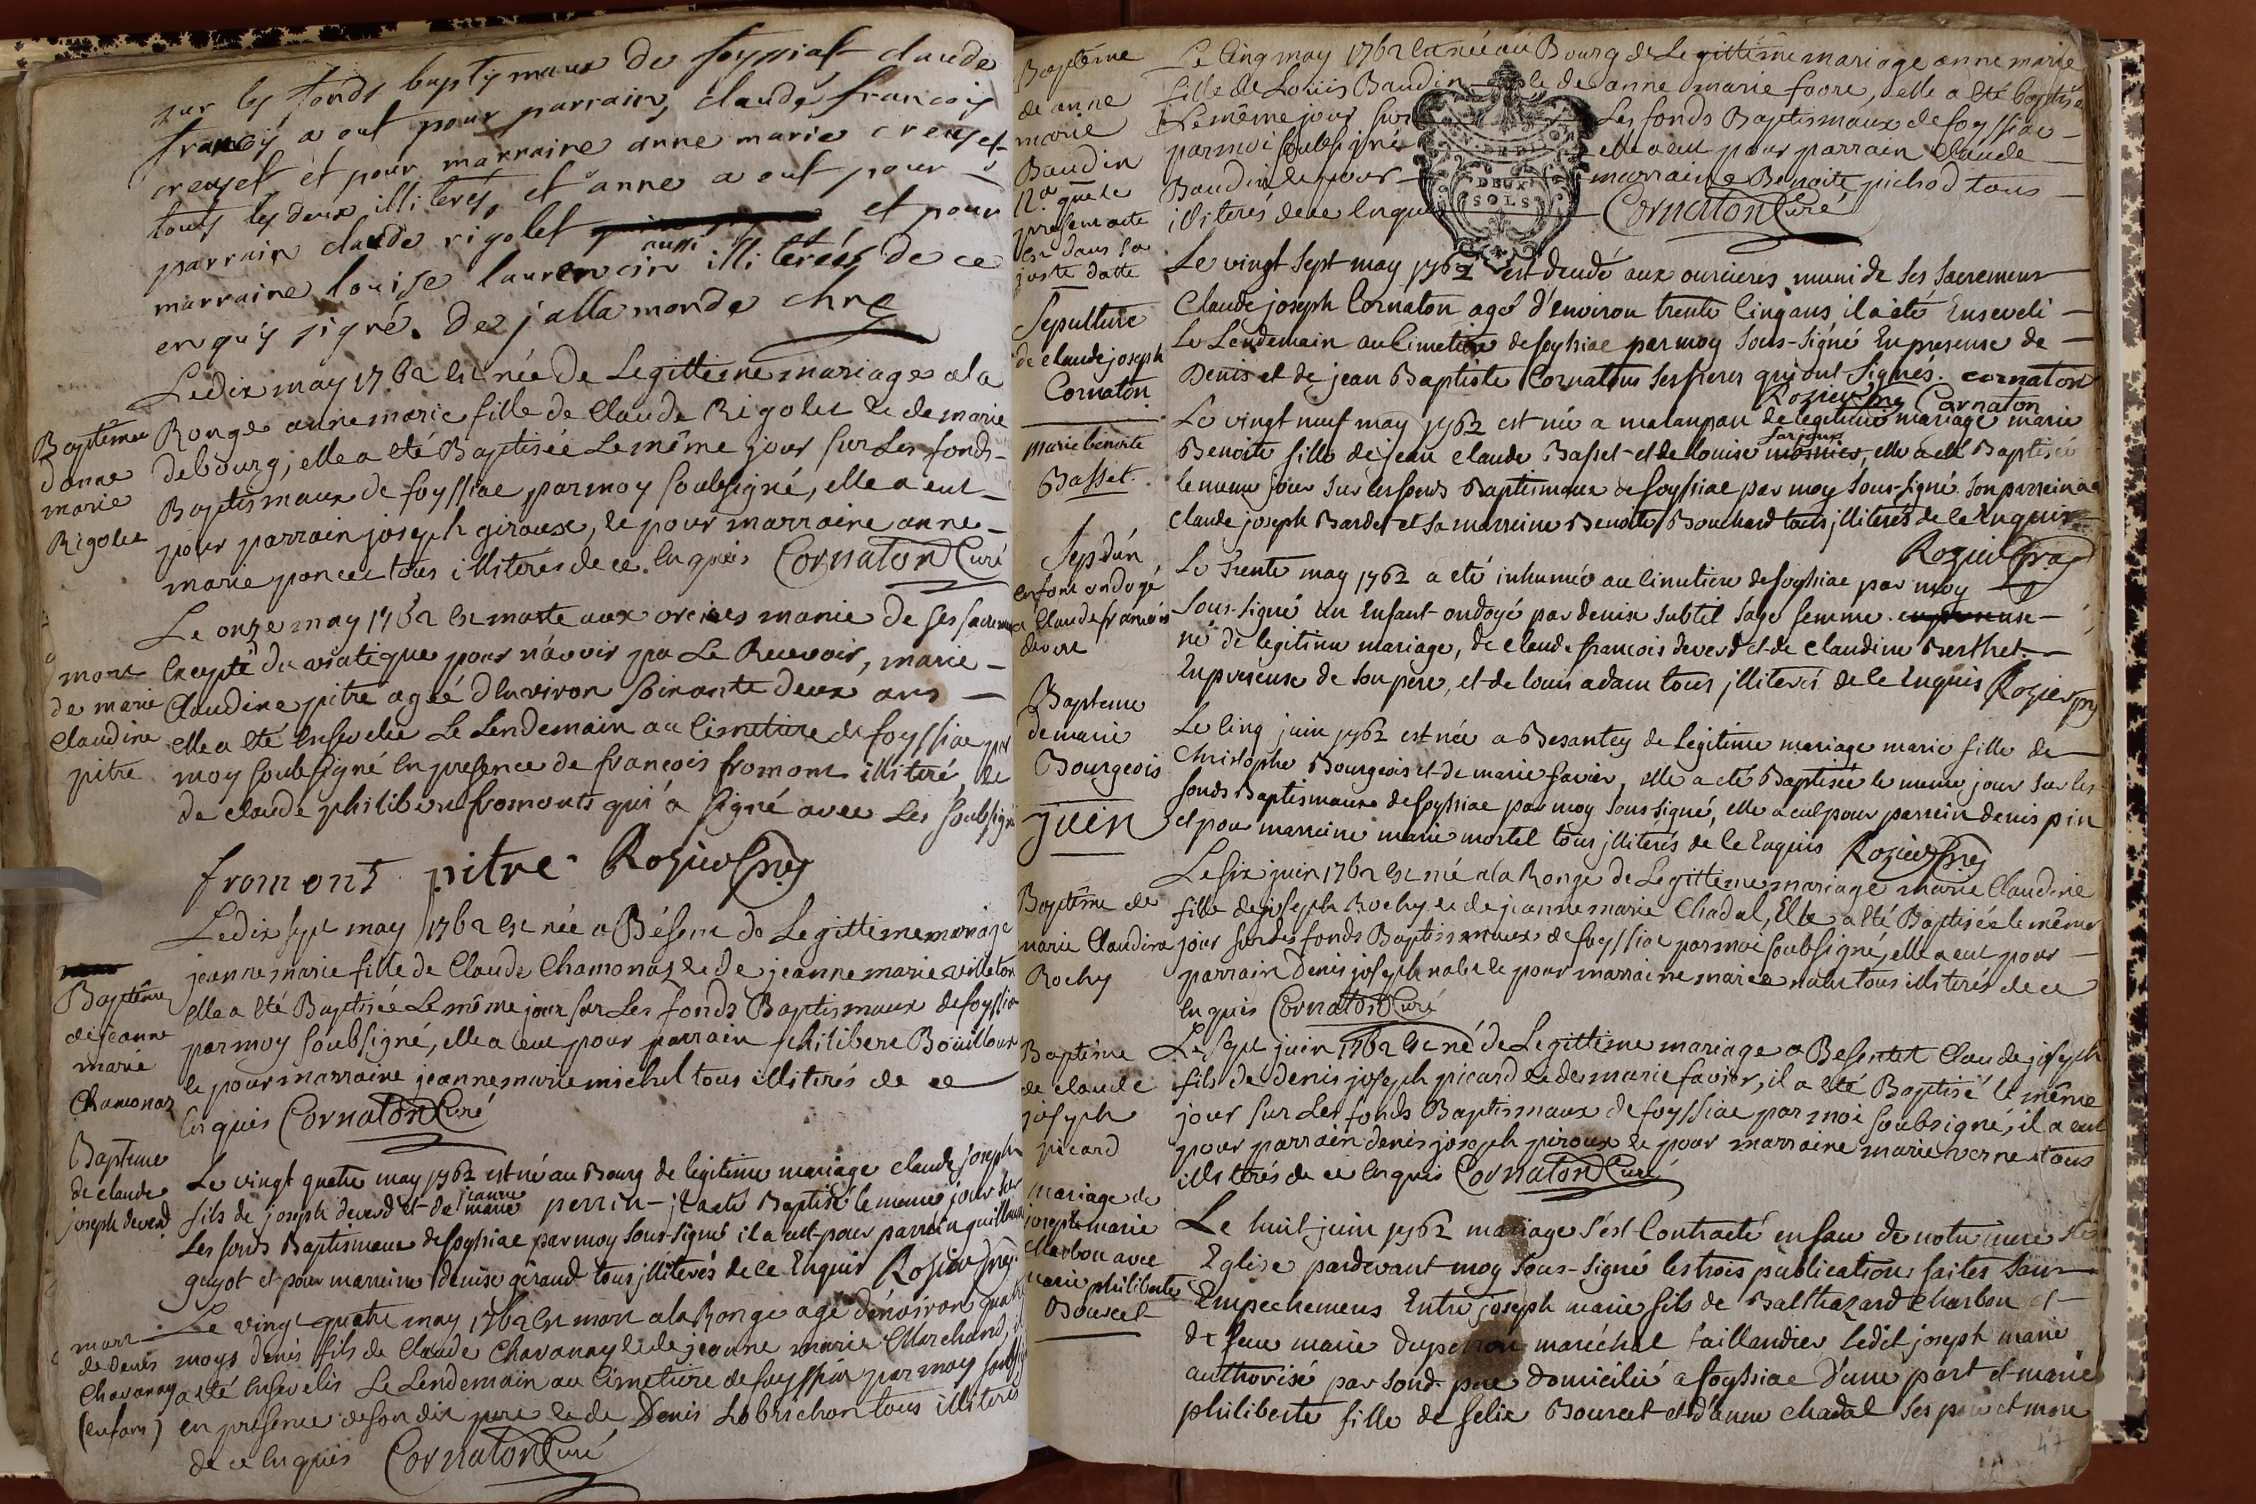 sur les fonds baptymaux de foyssiat claude
francoiy a out pour parrain, claude francoiy
creuzet et pour marraine anne marie creuzet
touts leys deux illiterés, et anne a out pour
parrain claude rigolet et pour
marraine louise laurencin aussi illiterés de ce
enquiy signé. Dez jallamonde chne
Baptême
d'anne
marie
Rigolet
Le dix may 1762 est née de Legittime mariage a la
Ronge anne marie fille de Claude Rigolet et de marie
debourg, elle a été Baptisée Le même jour sur Les fonds
Baptismaux de foyssiac par moy soubsigné, elle a eut
pour parrain joseph giroux, et pour marraine anne
marie poncet tous illiterés de ce Enquis Cornaton Curé
mort
de marie
Claudine
pitre
Le onze may 1762 est morte aux orcieres munie de ses sacremens
Excepté du viatique pour n'avoir pu Le Recevoir, marie
Claudine pitre agée d'Environ soixante deux ans
elle a été Ensevelie Le Lendemain au Cimetiere de foyssiac par
moy soubsigné En presence de francois fromont illiteré, et
de claude philibert fromont qui a signé avec Les soubsigné
fromont pitre Rozier
Baptême
de jeanne
marie
Chamonaz
Le dix sept may 1762 est née a Bésent de Legittime mariage
jeanne marie fille de Claude Chamonaz et de jeanne marie villeton
elle a été Baptisée Le même jour sur Les fonds Baptismaux de foyssiac
par moy soubsigné, elle a eut pour parrain philibert Bouilloux
et pour marraine jeanne marie michel tous illiterés de ce
Enquis Cornaton Curé
Bapteme
de claude
joseph deverd
Le vingt quatre may 1762 est né au Bourg de legitime mariage claude joseph
fils de joseph deverd et de jeanne marie perrin il a eté Baptisé le meme jour sur
Les fonds Baptismaux de foyssiac par moy sous-signé il a eut pour parrain guillaume
guyot et pour marreine denise géraud tous illiterés de ce Enquis Rozier
mort
de denis
Chavanay
(enfant)
Le vingt quatre may 1762 est mort a la Ronge agé d'environ quatre
moys denis fils de Claude Chavanay et de jeanne marie Marchand, il
a été Ensevelis Le Lendemain au Cimetiere de foyssiac par moy soubsigné
en presence de son dit pere et de Denis Lobrichon tous illiterés
de ce Enquis Cornaton Curé
Baptême
de anne
marie
Baudin
presente
est dans sa
juste datte
Le Cinq may 1762 est née au Bourg de Legittime mariage anne marie
fille de Louis Baudin et de anne marie favre, elle a été baptisée
Le même jour sur Les fonds Baptismaux de foyssiac
par moi soubsigné elle a eut pour parrain Claude
DEUX
SOLS
Baudin et pour marraine Benoite pichod tous
illiterés de ce Enquis Cornaton Curé
Sepulture
de claude joseph
Cornaton
Le vingt sept may 1762 est decedé aux ourcieres muni de ses sacremens
Claude joseph Cornaton agé d'environ trente Cinq ans il a eté Enseveli
Le Lendemain au Cimetiere de foyssiac par moy sous-signé En presense de
Denis et de jean Baptiste Cornatons ses freres qui ont signés. cornaton
Rozier Cornaton
marie benoite
Basset
Le vingt neuf may 1762 est née a malaupan de legitime mariage marie
Benoite fille de jean claude Basset et de louise farjoux, elle a eté Baptisée
le meme jour sur les fonds Baptismaux de foyssiac par moy sous-signé son parrein a eté
Claude joseph Bardet et sa marreine Benoite Bouchard tous illiterés de ce Enquis
Rozier
Sep d'un
enfant ondoyé
a Claude francois
devere
Le trente may 1762 a eté inhumé au Cimetiere de foyssiac par moy
sous-signé un Enfant ondoyé par denise subtil sage femme
né de legitime mariage, de claude francois deverd et de claudine Berthet
En presense de son pere, et de louis adam tous illiterés de ce Enquis Rozier
Bapteme
de marie
Bourgeois
juin
Le Cinq juin 1762 est née a Besantey de legitime mariage marie fille de
Christophe Bourgeois et de marie favier, elle a eté Baptisée le meme jour sur les
fonds Baptismaux de foyssiac par moy sous signé, elle a eut pour parrein denis pin
et pour marreine marie mortel tous illiterés de ce Enquis Rozier
Baptême de
marie Claudine
Rochy
Le six juin 1762 est née a la Ronge de Legittime mariage marie Claudine
fille de joseph Rochy et de jeanne marie Chadal, Elle a été Baptisée le même
jour sur Les fonds Baptismaux de foyssiac par moi soubsigné, elle a eut pour
parrain denis joseph nalet et pour marraine marie nalet tous illiterés de ce
Enquis Cornaton Curé
Baptême
de claude
joseph
picard
Le Sept juin 1762 est né de Legittime mariage a Besentet Claude joseph
fils de denis joseph picard et de marie favier, il a été Baptisé le même
jour sur Les fonds Baptismaux de foyssiac par moi soubsigné, il a eut
pour parrain denis joseph piroux et pour marraine marie verne tous
illiterés de ce Enquis Cornaton Curé
mariage de
joseph marie
Charbon avec
marie philiberte
Bourcet
Le huit juin 1762 mariage s'est Contracté en face de notre mere ste
Eglise pardevant moy sous-signé les trois publications faites sans
Empechemens Entre joseph marie fils de Balthazard Charbon et
de feue marie maréchal taillandier ledit joseph marie
authorisé par sond. pere domicilié a foyssiac d'une part et marie
philiberte fille de felix Bourcet et d'anne chadal ses pere et mere
47